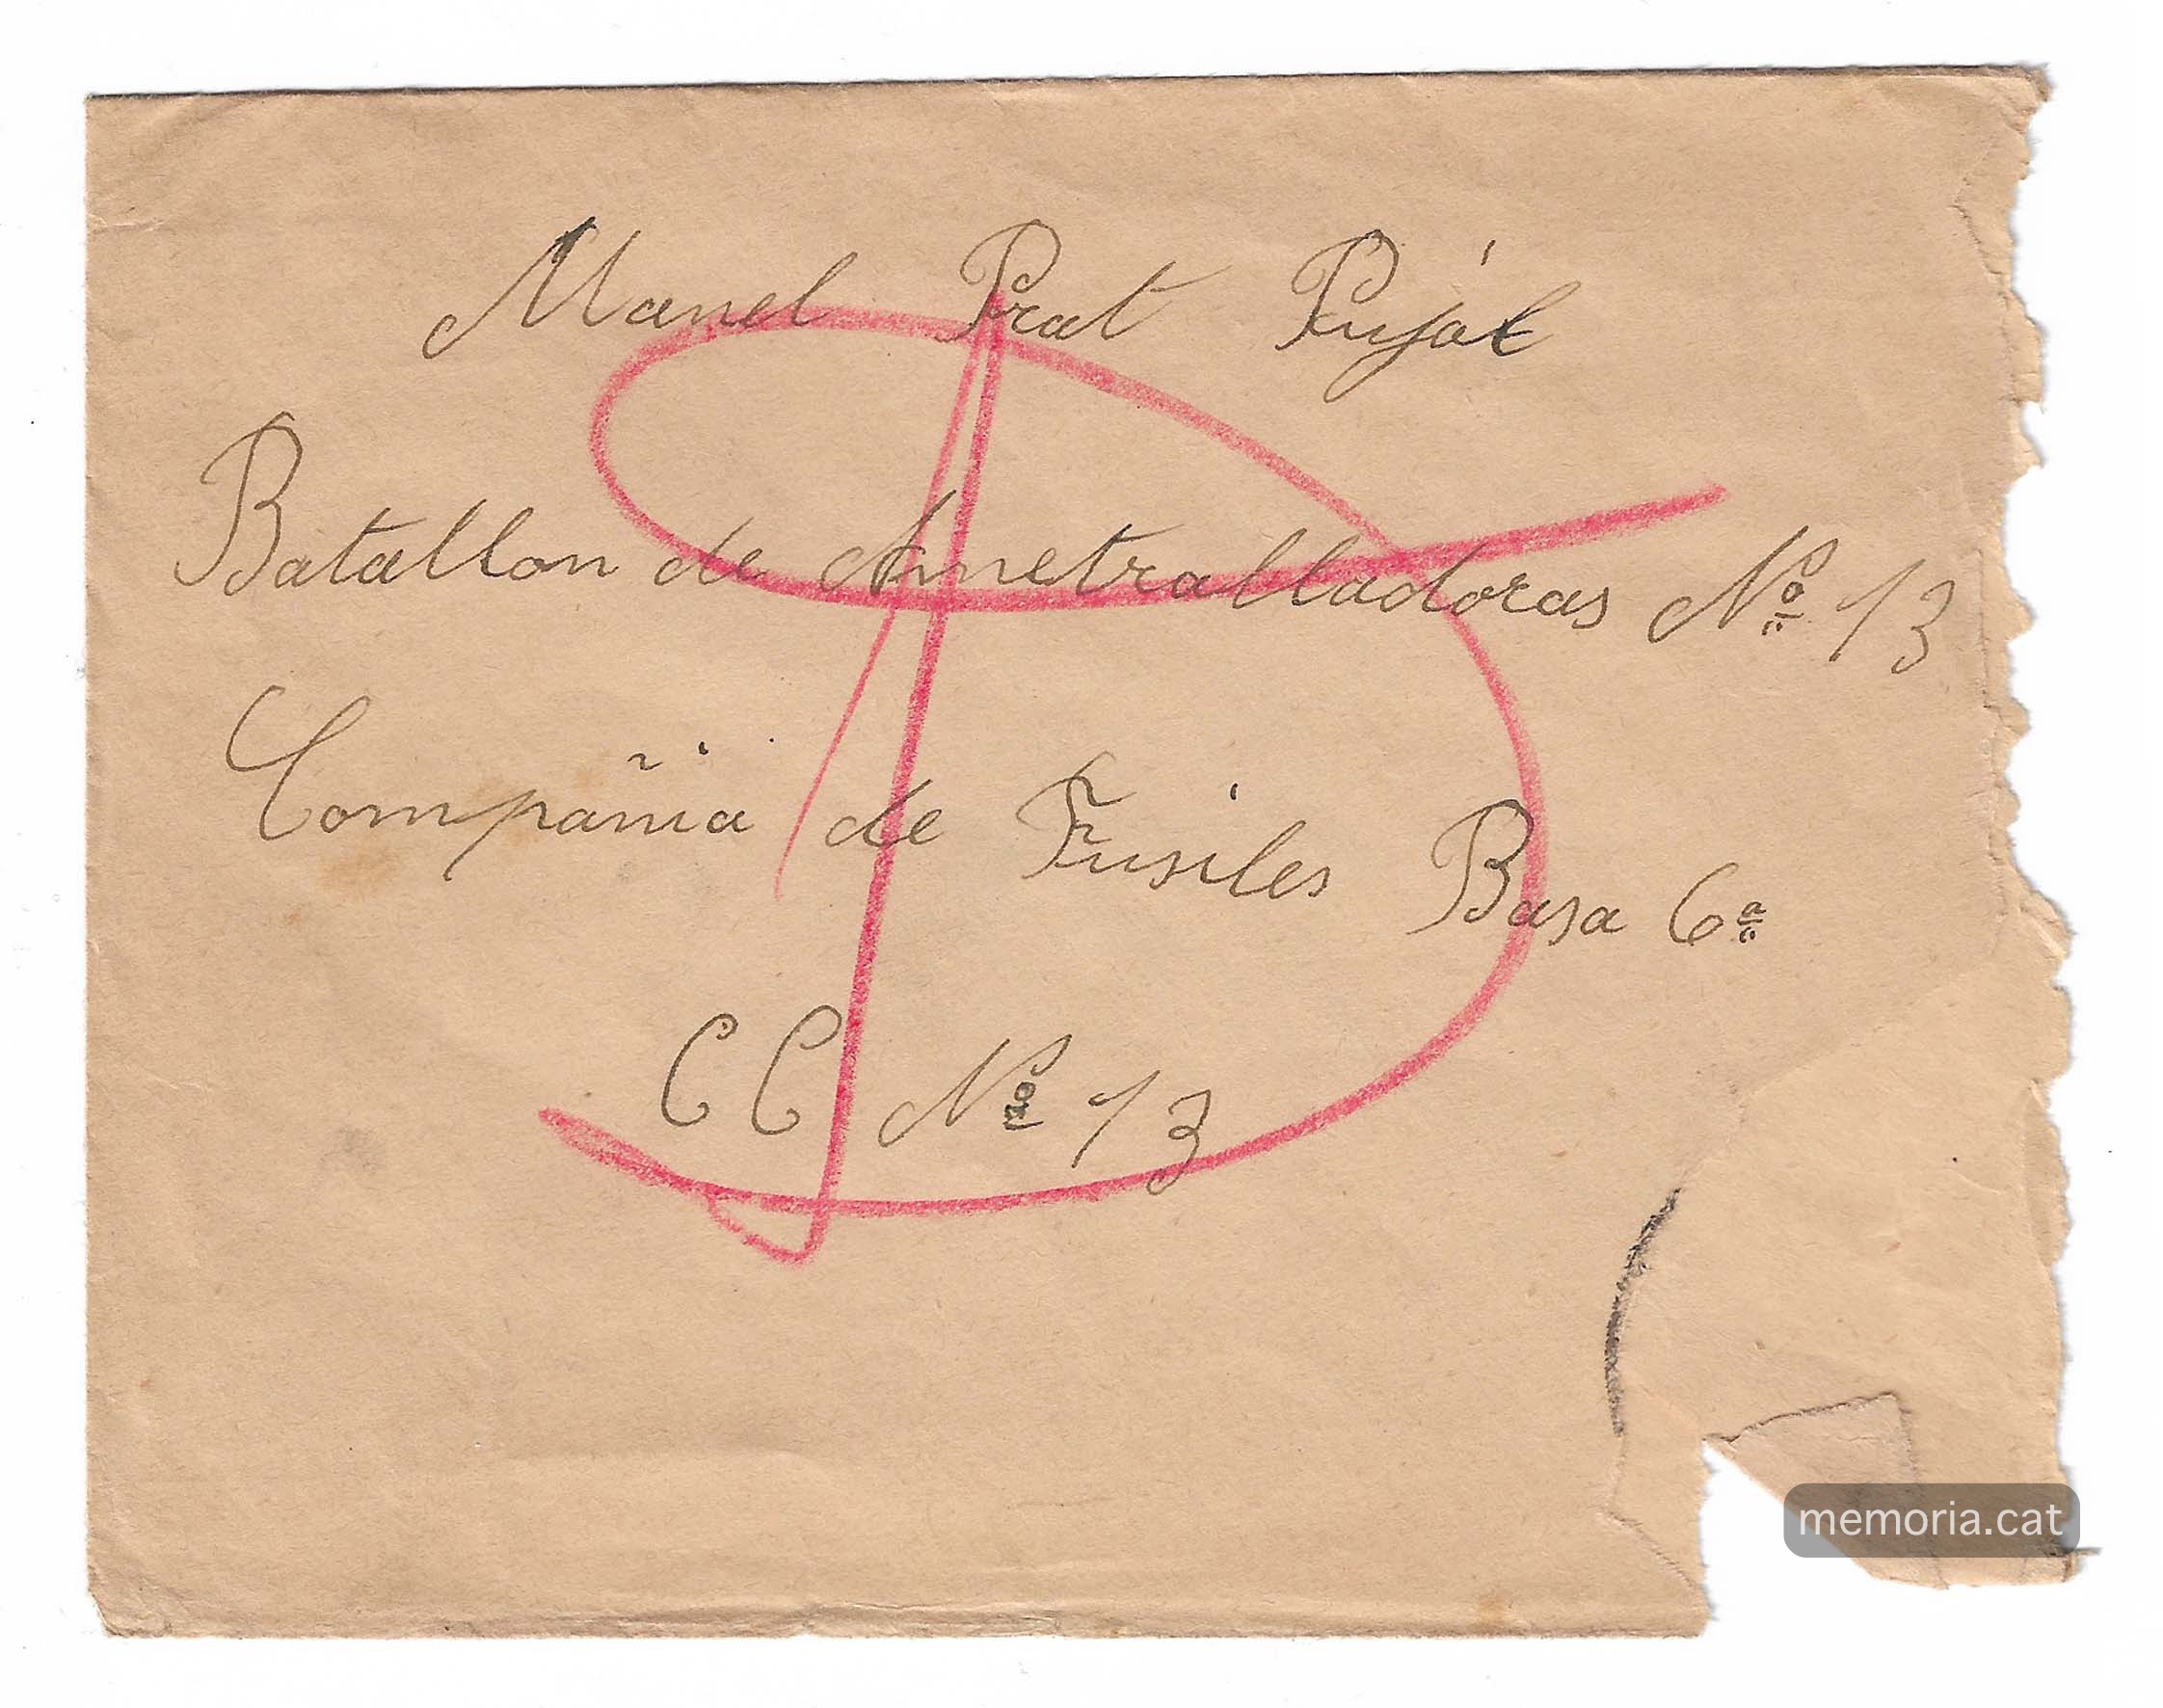 Manel Prat Pujól
Batallon de Ametralladoras Nº 13
Compañia de Fusiles Basa 6ª
CC Nº 13
memoria.cat